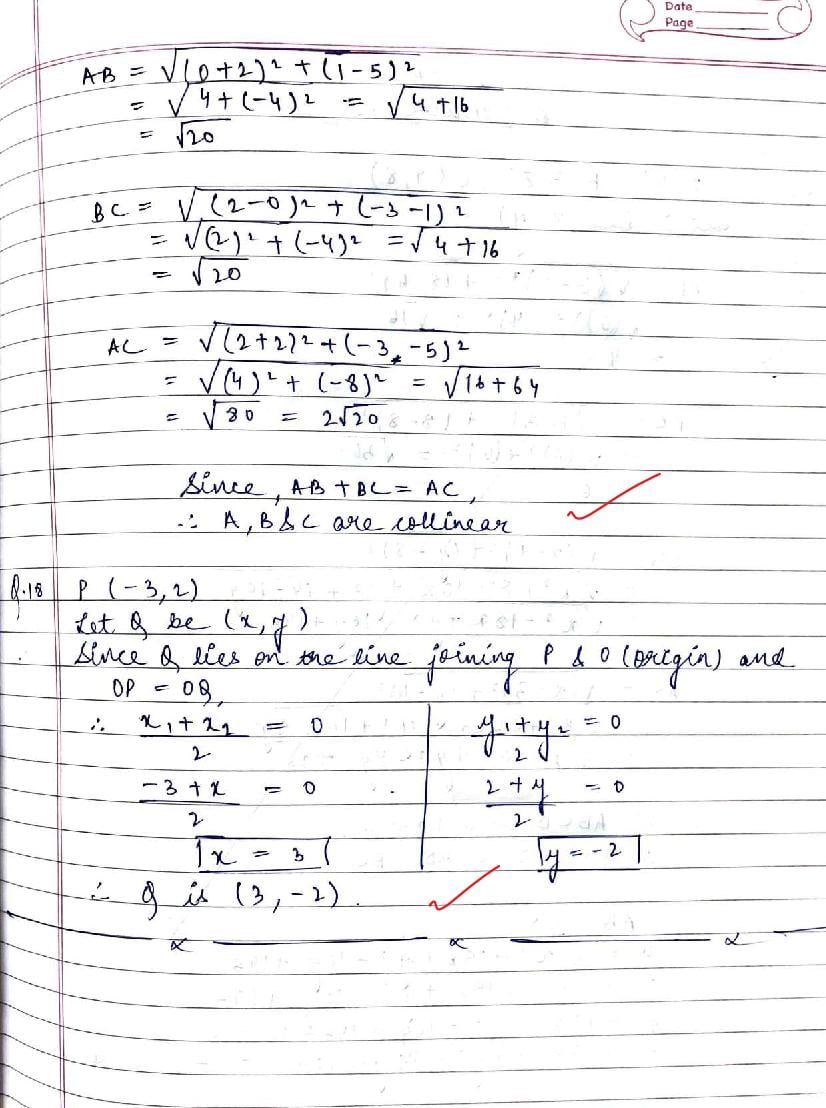 Date
Page
AB = √(0+2)² + (1-5)²
= √4+(-4)² = √4+16
= √20
BC = √(2-0)² + (-3-1)²
= √(2)² + (-4)² = √4+16
= √20
AC = √(2+2)² + (-3-5)²
= √(4)² + (-8)² = √16+64
= √80 = 2√20
Since, AB + BC = AC,
∴ A, B & C are collinear
Q.18 P (-3, 2)
Let Q be (x, y)
Since Q lies on the line joining P & O (origin) and
OP = OQ,
∴ x₁ + x₂ / 2 = 0 y₁ + y₂ / 2 = 0
-3 + x / 2 = 0 2 + y / 2 = 0
x = 3 y = -2
∴ Q is (3, -2).